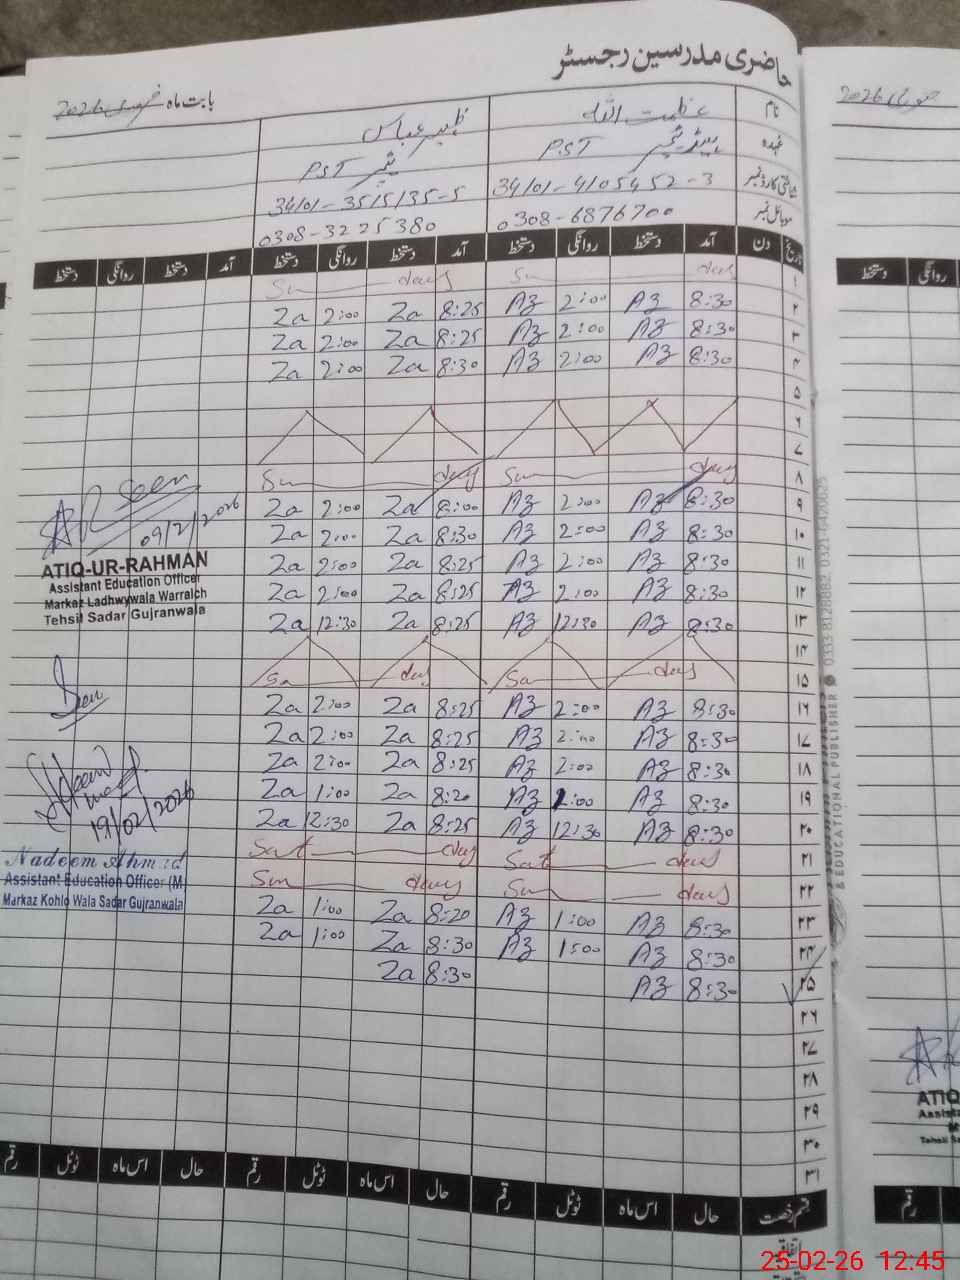 حاضری مدرسین رجسٹر
بابت ماہ فروری 2026
نام عظمت اللہ ظہیر عباس
عہدہ ہیڈ ٹیچر PST ٹیچر PST
شناختی کارڈ نمبر 34101-4105452-3 34101-3515135-5
موبائل نمبر 0308-6876700 0308-3225380
تاریخ دن آمد دستخط روانگی دستخط آمد دستخط روانگی دستخط آمد دستخط روانگی دستخط
۱ Sun days Sun days
۲ 8:30 Az 2:00 Az 8:25 Za 2:00 Za
۳ 8:30 Az 2:00 Az 8:25 Za 2:00 Za
۴ 8:30 Az 2:00 Az 8:30 Za 2:00 Za
۵
۶
۷
۸ Sun day Sun day
۹ 8:30 Az 2:00 Az 8:00 Za 2:00 Za
۱۰ 8:30 Az 2:00 Az 8:30 Za 2:00 Za
۱۱ 8:30 Az 2:00 Az 8:25 Za 2:00 Za
۱۲ 8:30 Az 2:00 Az 8:25 Za 2:00 Za
۱۳ 8:30 Az 12:30 Az 8:25 Za 12:30 Za
۱۴
۱۵ Sa day Sa day
۱۶ 8:30 Az 2:00 Az 8:25 Za 2:00 Za
۱۷ 8:30 Az 2:00 Az 8:25 Za 2:00 Za
۱۸ 8:30 Az 2:00 Az 8:25 Za 2:00 Za
۱۹ 8:30 Az 1:00 Az 8:20 Za 1:00 Za
۲۰ 8:30 Az 12:30 Az 8:25 Za 12:30 Za
۲۱ Sat day Sat day
۲۲ Sun days Sun days
۲۳ 8:30 Az 1:00 Az 8:20 Za 1:00 Za
۲۴ 8:30 Az 1:00 Az 8:30 Za 1:00 Za
۲۵ 8:30 Az 8:30 Za
۲۶
۲۷
۲۸
۲۹
۳۰
۳۱
قسم رخصت حال اس ماہ ٹوٹل رقم حال اس ماہ ٹوٹل رقم حال اس ماہ ٹوٹل رقم
اتفاقیہ
09/2/2026
ATIQ-UR-RAHMAN
Assistant Education Officer
Markaz Ladhwywala Warraich
Tehsil Sadar Gujranwala
19/02/2026
Nadeem Ahmad
Assistant Education Officer (M)
Markaz Kohlo Wala Sadar Gujranwala
& EDUCATIONAL PUBLISHER 0333-8128882, 0321-6420625
2026
دستخط روانگی
ATIQ
Assista
M
Tehsil Sa
رقم
25-02-26 12:45